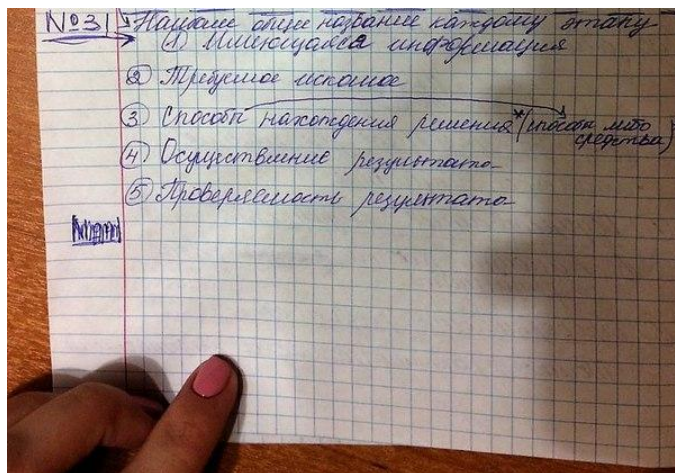 №3 Напиши общее название каждому этапу
① Имеющаяся информация
② Требуемое искомое
③ Способы нахождения решения *(способы либо
средства)
④ Осуществление результата
⑤ Проверяемость результата